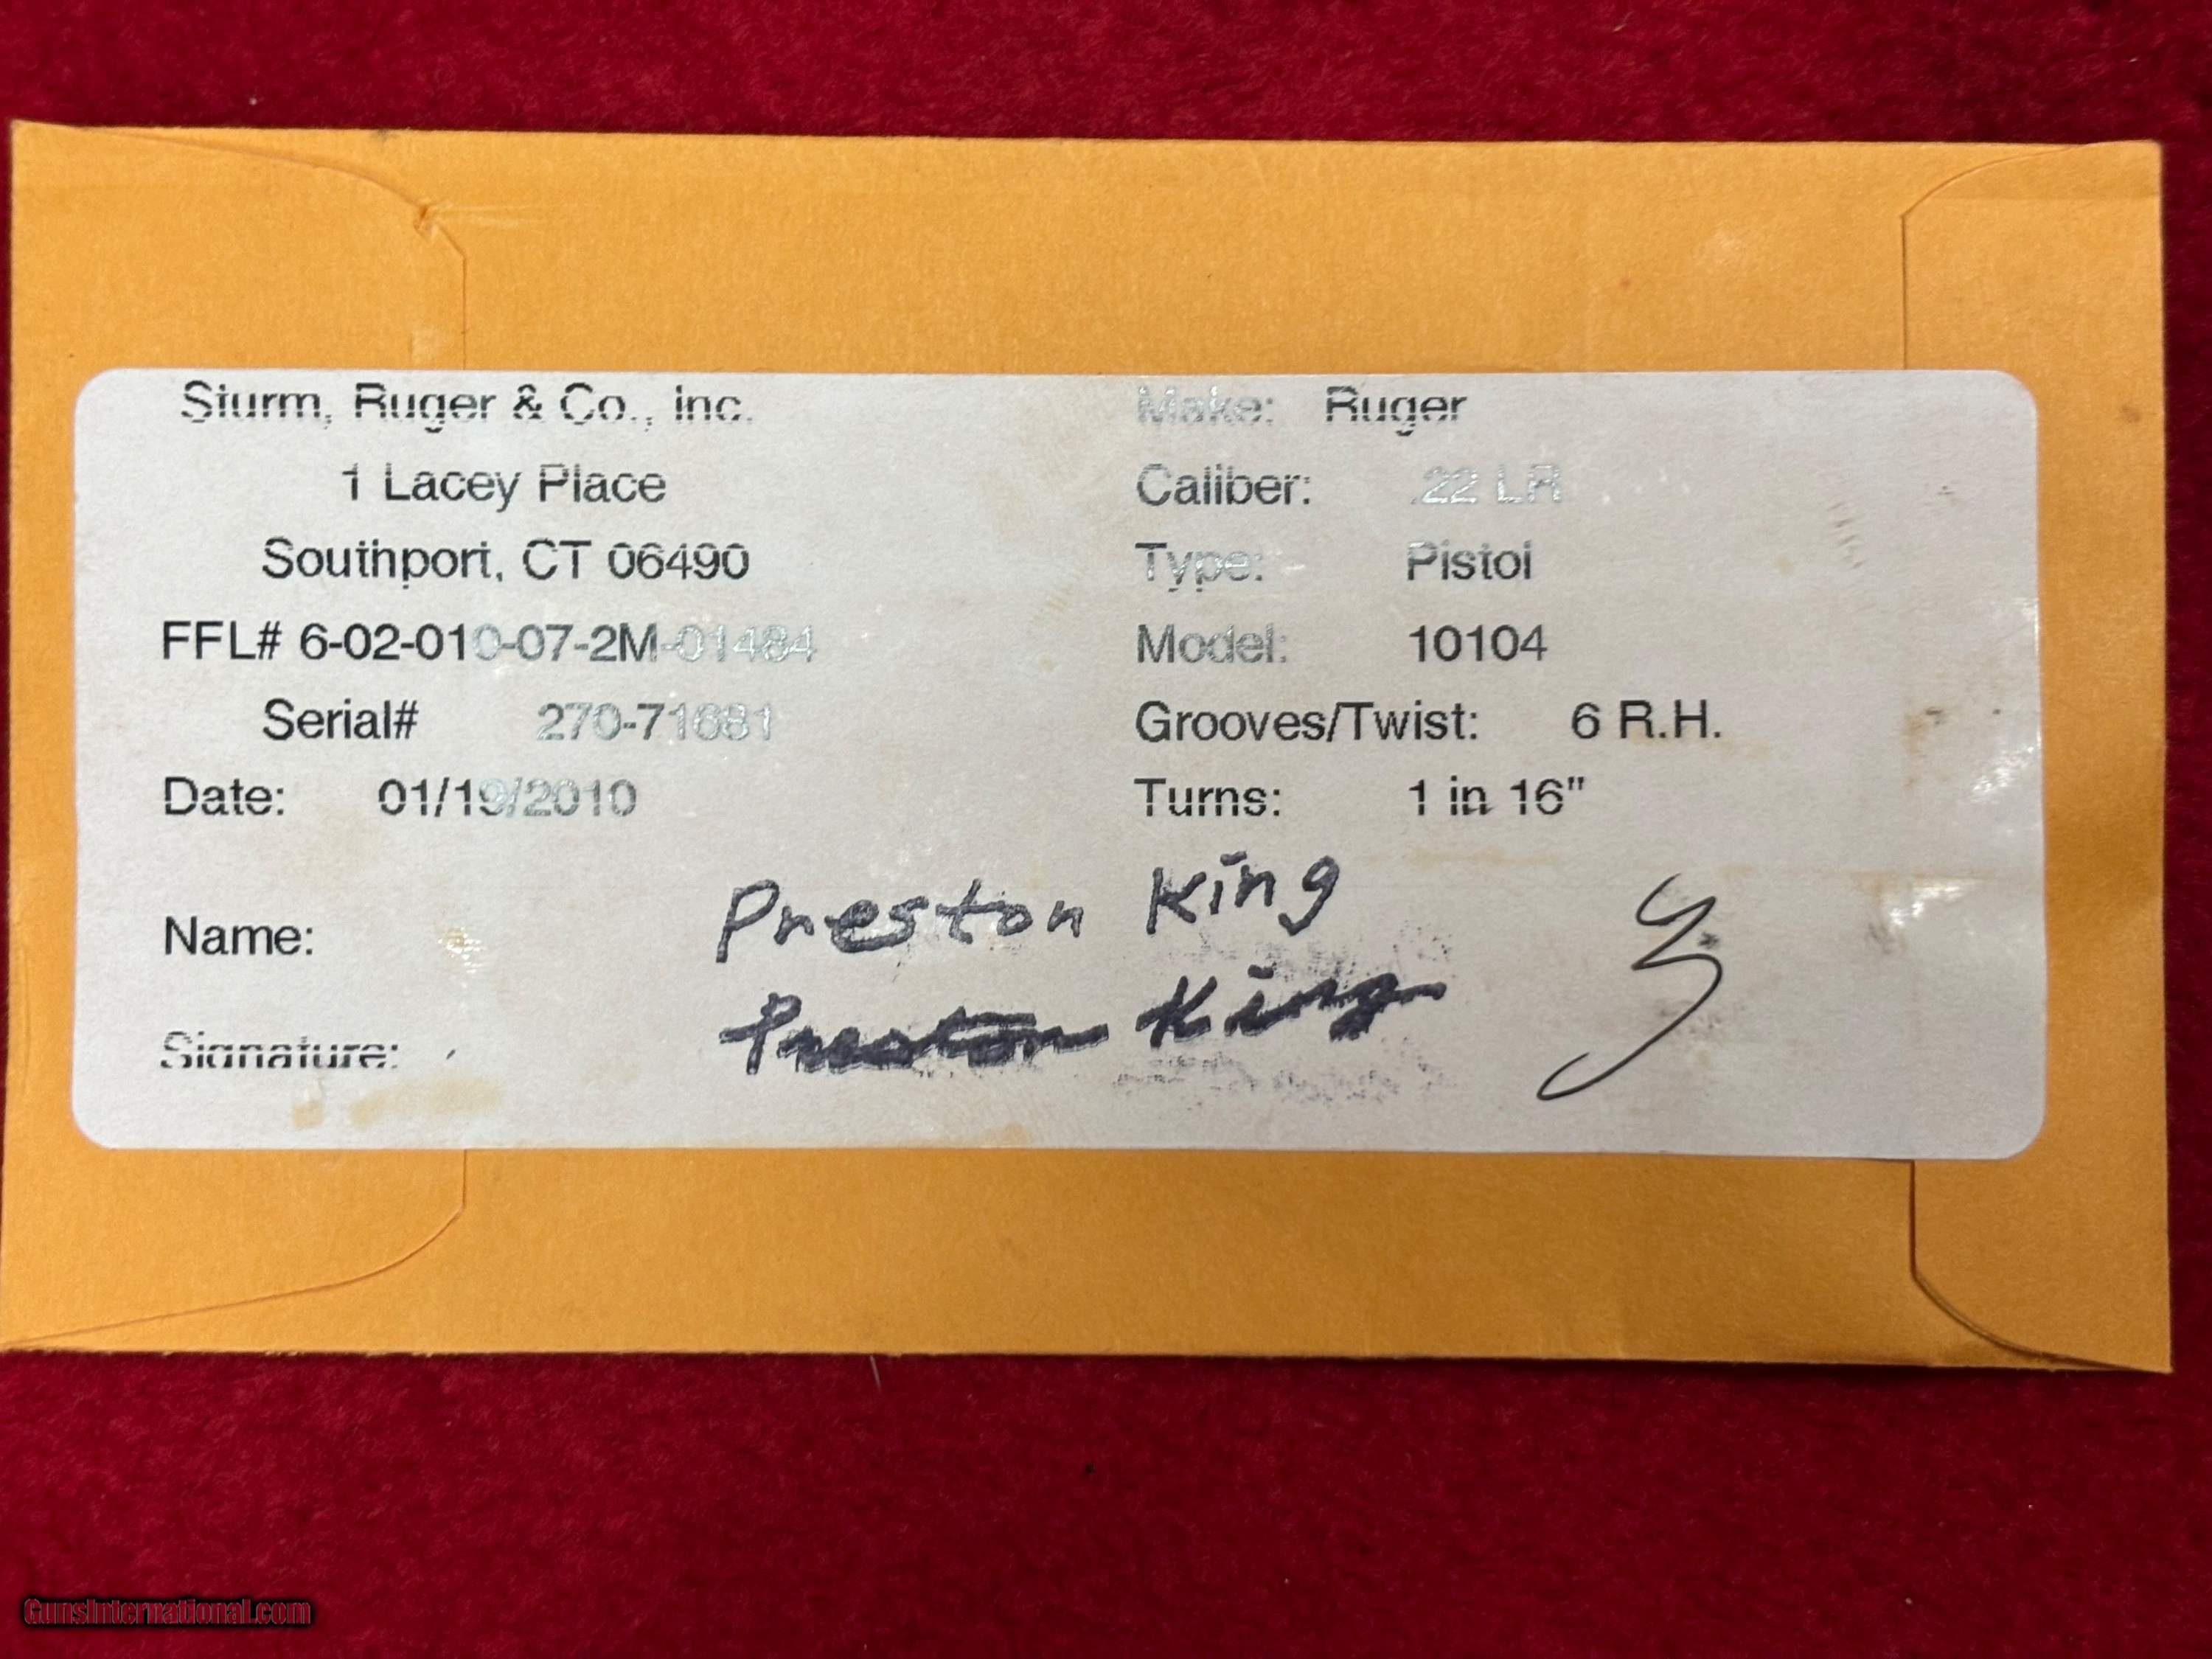 Sturm, Ruger & Co., Inc.
1 Lacey Place
Southport, CT 06490
FFL# 6-02-010-07-2M-01484
Serial# 270-71681
Date: 01/19/2010
Make: Ruger
Caliber: .22 LR
Type: Pistol
Model: 10104
Grooves/Twist: 6 R.H.
Turns: 1 in 16"
Name: Preston King
Signature: Preston King
GunsInternational.com